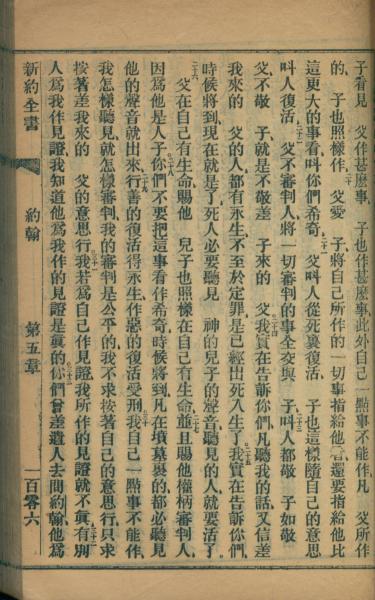 子看見 父作甚麽事 子也作甚麽事此外自己一點事不能作 父所作
的 子也照樣作二十 父愛 子將自己所作的一切事指給他看還要指給他比
這更大的事看叫你們希奇二十一 父叫人從死裏復活 子也這樣隨自己的意思
叫人復活二十二 父不審判人將一切審判的事全交與 子二十三叫人都敬 子如敬
父不敬 子就是不敬差 子來的 父二十四我實在告訴你們凡聽我的話又信差
我來的 父的人都有永生不至於定罪是已經出死入生了二十五我實在告訴你們
時候將到現在就是了死人必要聽見 神的兒子的聲音聽見的人就要活了
二十六 父在自己有生命賜他 兒子也照樣在自己有生命二十七並且賜他權柄審判人
因爲他是人子二十八你們不要把這事看作希奇時候將到凡在墳墓裏的都必聽見
他的聲音就出來二十九行善的復活得永生作惡的復活受刑三十我自己一點事不能作
我怎樣聽見就怎樣審判我的審判是公平的我不求按著自己的意思行只求
按著差我來的 父的意思行三十一我若爲自己作見證我所作的見證就不眞三十二有別
人爲我作見證我知道他爲我作的見證是眞的三十三你們曾差遣人去問約翰他爲
新約全書 約翰 第五章 一百零六